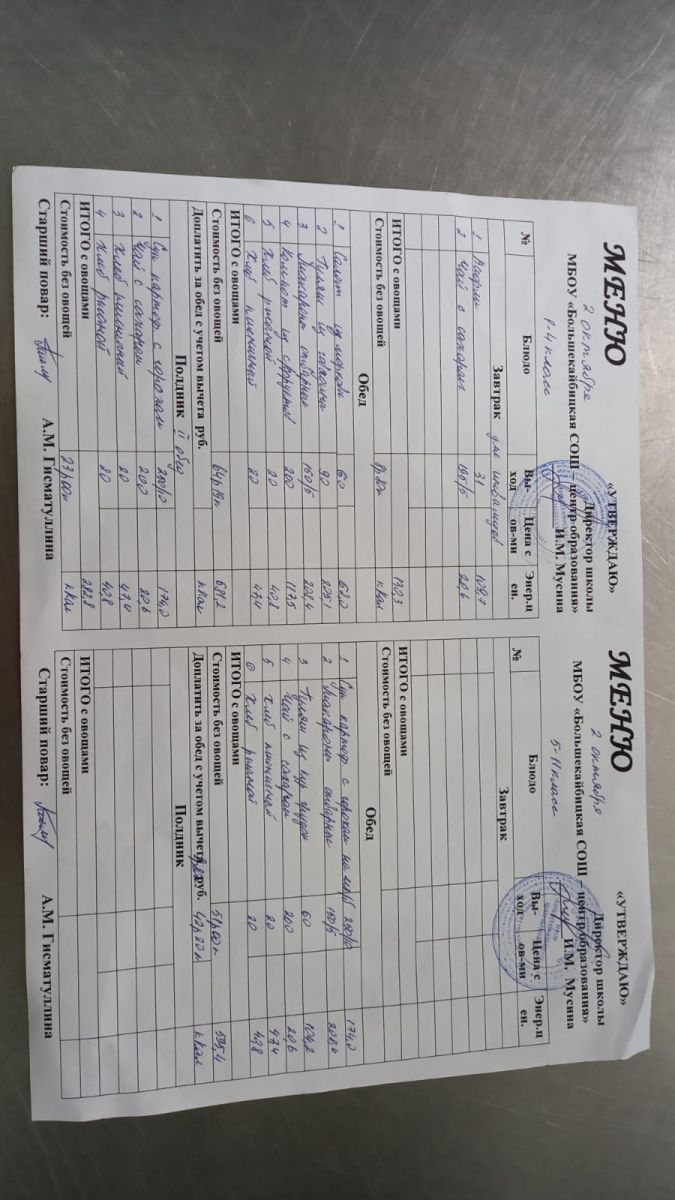 «УТВЕРЖДАЮ»
Директор школы
МЕНЮ
2 октября
МБОУ «Большекайбицкая СОШ – центр образования»
И.М. Мусина
1-4 класс
№ Блюдо Вы-ход Цена с ов-ми Энер.ц ен.
Завтрак для инвалидов
1 Вафли 31 109,7
2 Чай с сахаром 195/5 20,6
ИТОГО с овощами 130,3
Стоимость без овощей ккал
Обед
1 Салат из моркови 60
2 Гуляш из говядины 90
3 Макароны отварные 150/5 208,4
4 Компот из фруктов 200 117,5
5 Хлеб ржаной 20 40,8
6 Хлеб пшеничный 20 47,4
ИТОГО с овощами
Стоимость без овощей 64р19к
Доплатить за обед с учетом вычета руб. ккал
Полдник II обед
1 Суп картоф с горохом 174,0
2 Чай с сахаром 200 20,6
3 Хлеб пшеничный 20 47,4
4 Хлеб ржаной 20 40,8
ИТОГО с овощами 282,8
Стоимость без овощей 23р00к ккал
Старший повар: А.М. Гисматуллина
«УТВЕРЖДАЮ»
Директор школы
МЕНЮ
2 октября
МБОУ «Большекайбицкая СОШ – центр образования»
И.М. Мусина
5-11 класс
№ Блюдо Вы-ход Цена с ов-ми Энер.ц ен.
Завтрак
ИТОГО с овощами
Стоимость без овощей
Обед
1 Суп картоф с горохом 174,0
2 Макароны отварные 150/5 208,4
3 Гуляш из кур грудок 60 104,2
4 Чай с сахаром 200 20,6
5 Хлеб пшеничный 20 47,4
6 Хлеб ржаной 20 40,8
ИТОГО с овощами
Стоимость без овощей 51р00к 595,4
Доплатить за обед с учетом вычета руб. 42р20к ккал
Полдник
ИТОГО с овощами
Стоимость без овощей
Старший повар: А.М. Гисматуллина